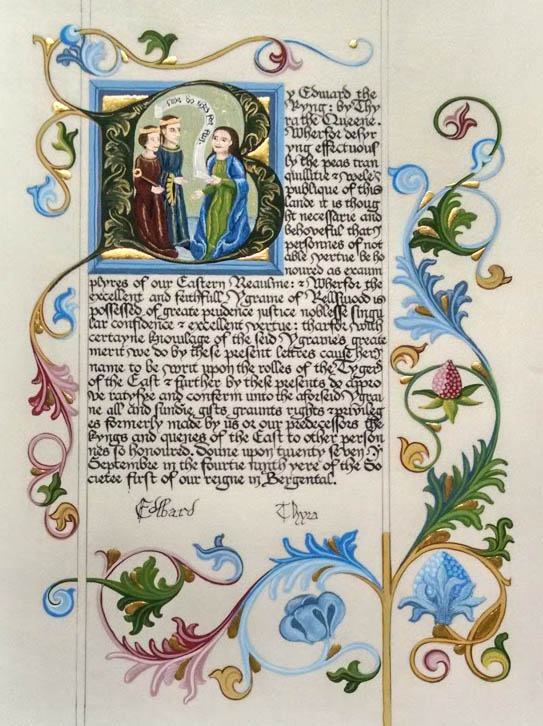 By Edward the
Kyng: by Thy
ra the Queene.
Wherfor desyr
yng effectuous
ly the peas tran
quillitie & wele
publique of this
lande it is thoug
ht necessarie and
behoveful that
personnes of not
able vertue be ho
noured as exaum
plyres of our Eastern Reaulme: & Wherfor the
excellent and feithfull Ygraine of Bellwood is
possessed of greate prudence justice noblesse singu
lar confidence & excellent vertue: tharfor with
certayne knowlage of the seid Ygraine's greate
merit we do by these present lettres cause her
name to be writ upon the rolles of the Tygers
of the East & further by these presents do appro
ve ratyfye and conferm unto the aforseid Ygrai
ne all and sundie gifts graunts rights & privileg
es formerly made by us or our predecessors the
kyngs and quenes of the East to other person
nes so honoured. Donne upon twenty seven
Septembre in the fourtie ninth yere of the So
cietee first of our reigne in Bergental.
Edward Thyra